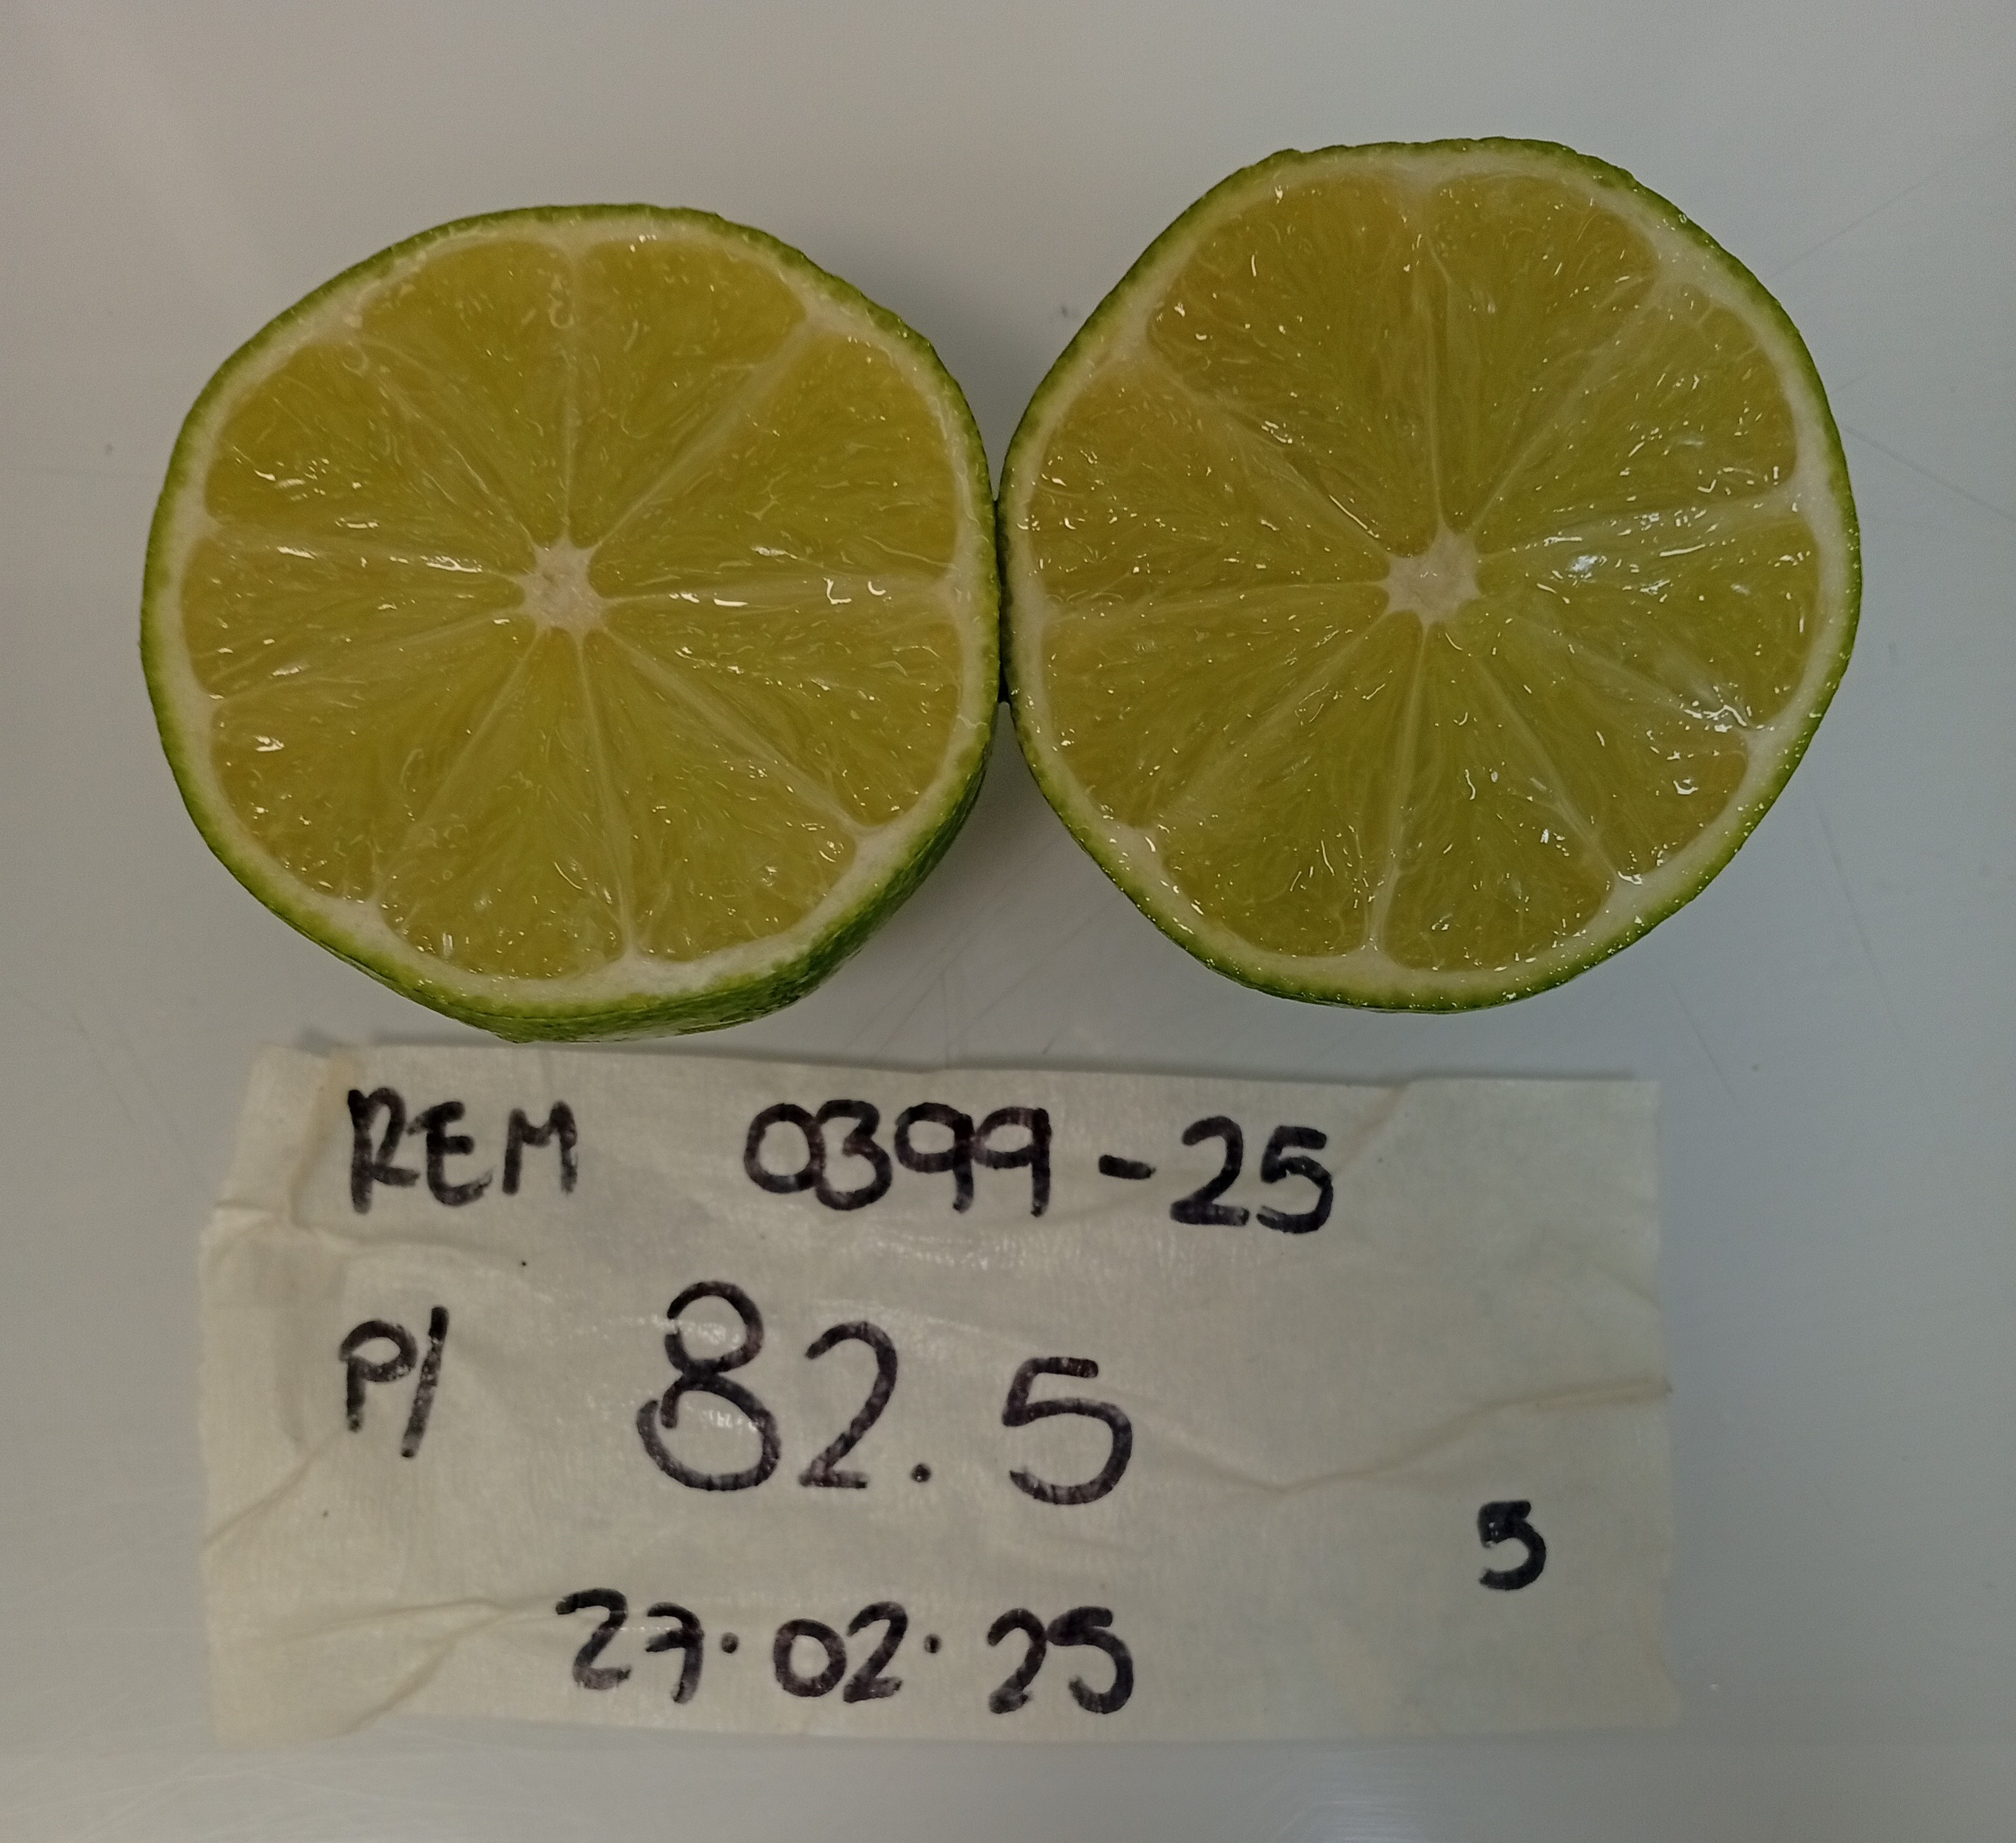 REM 0399-25
P/ 82.5
5
27.02.25